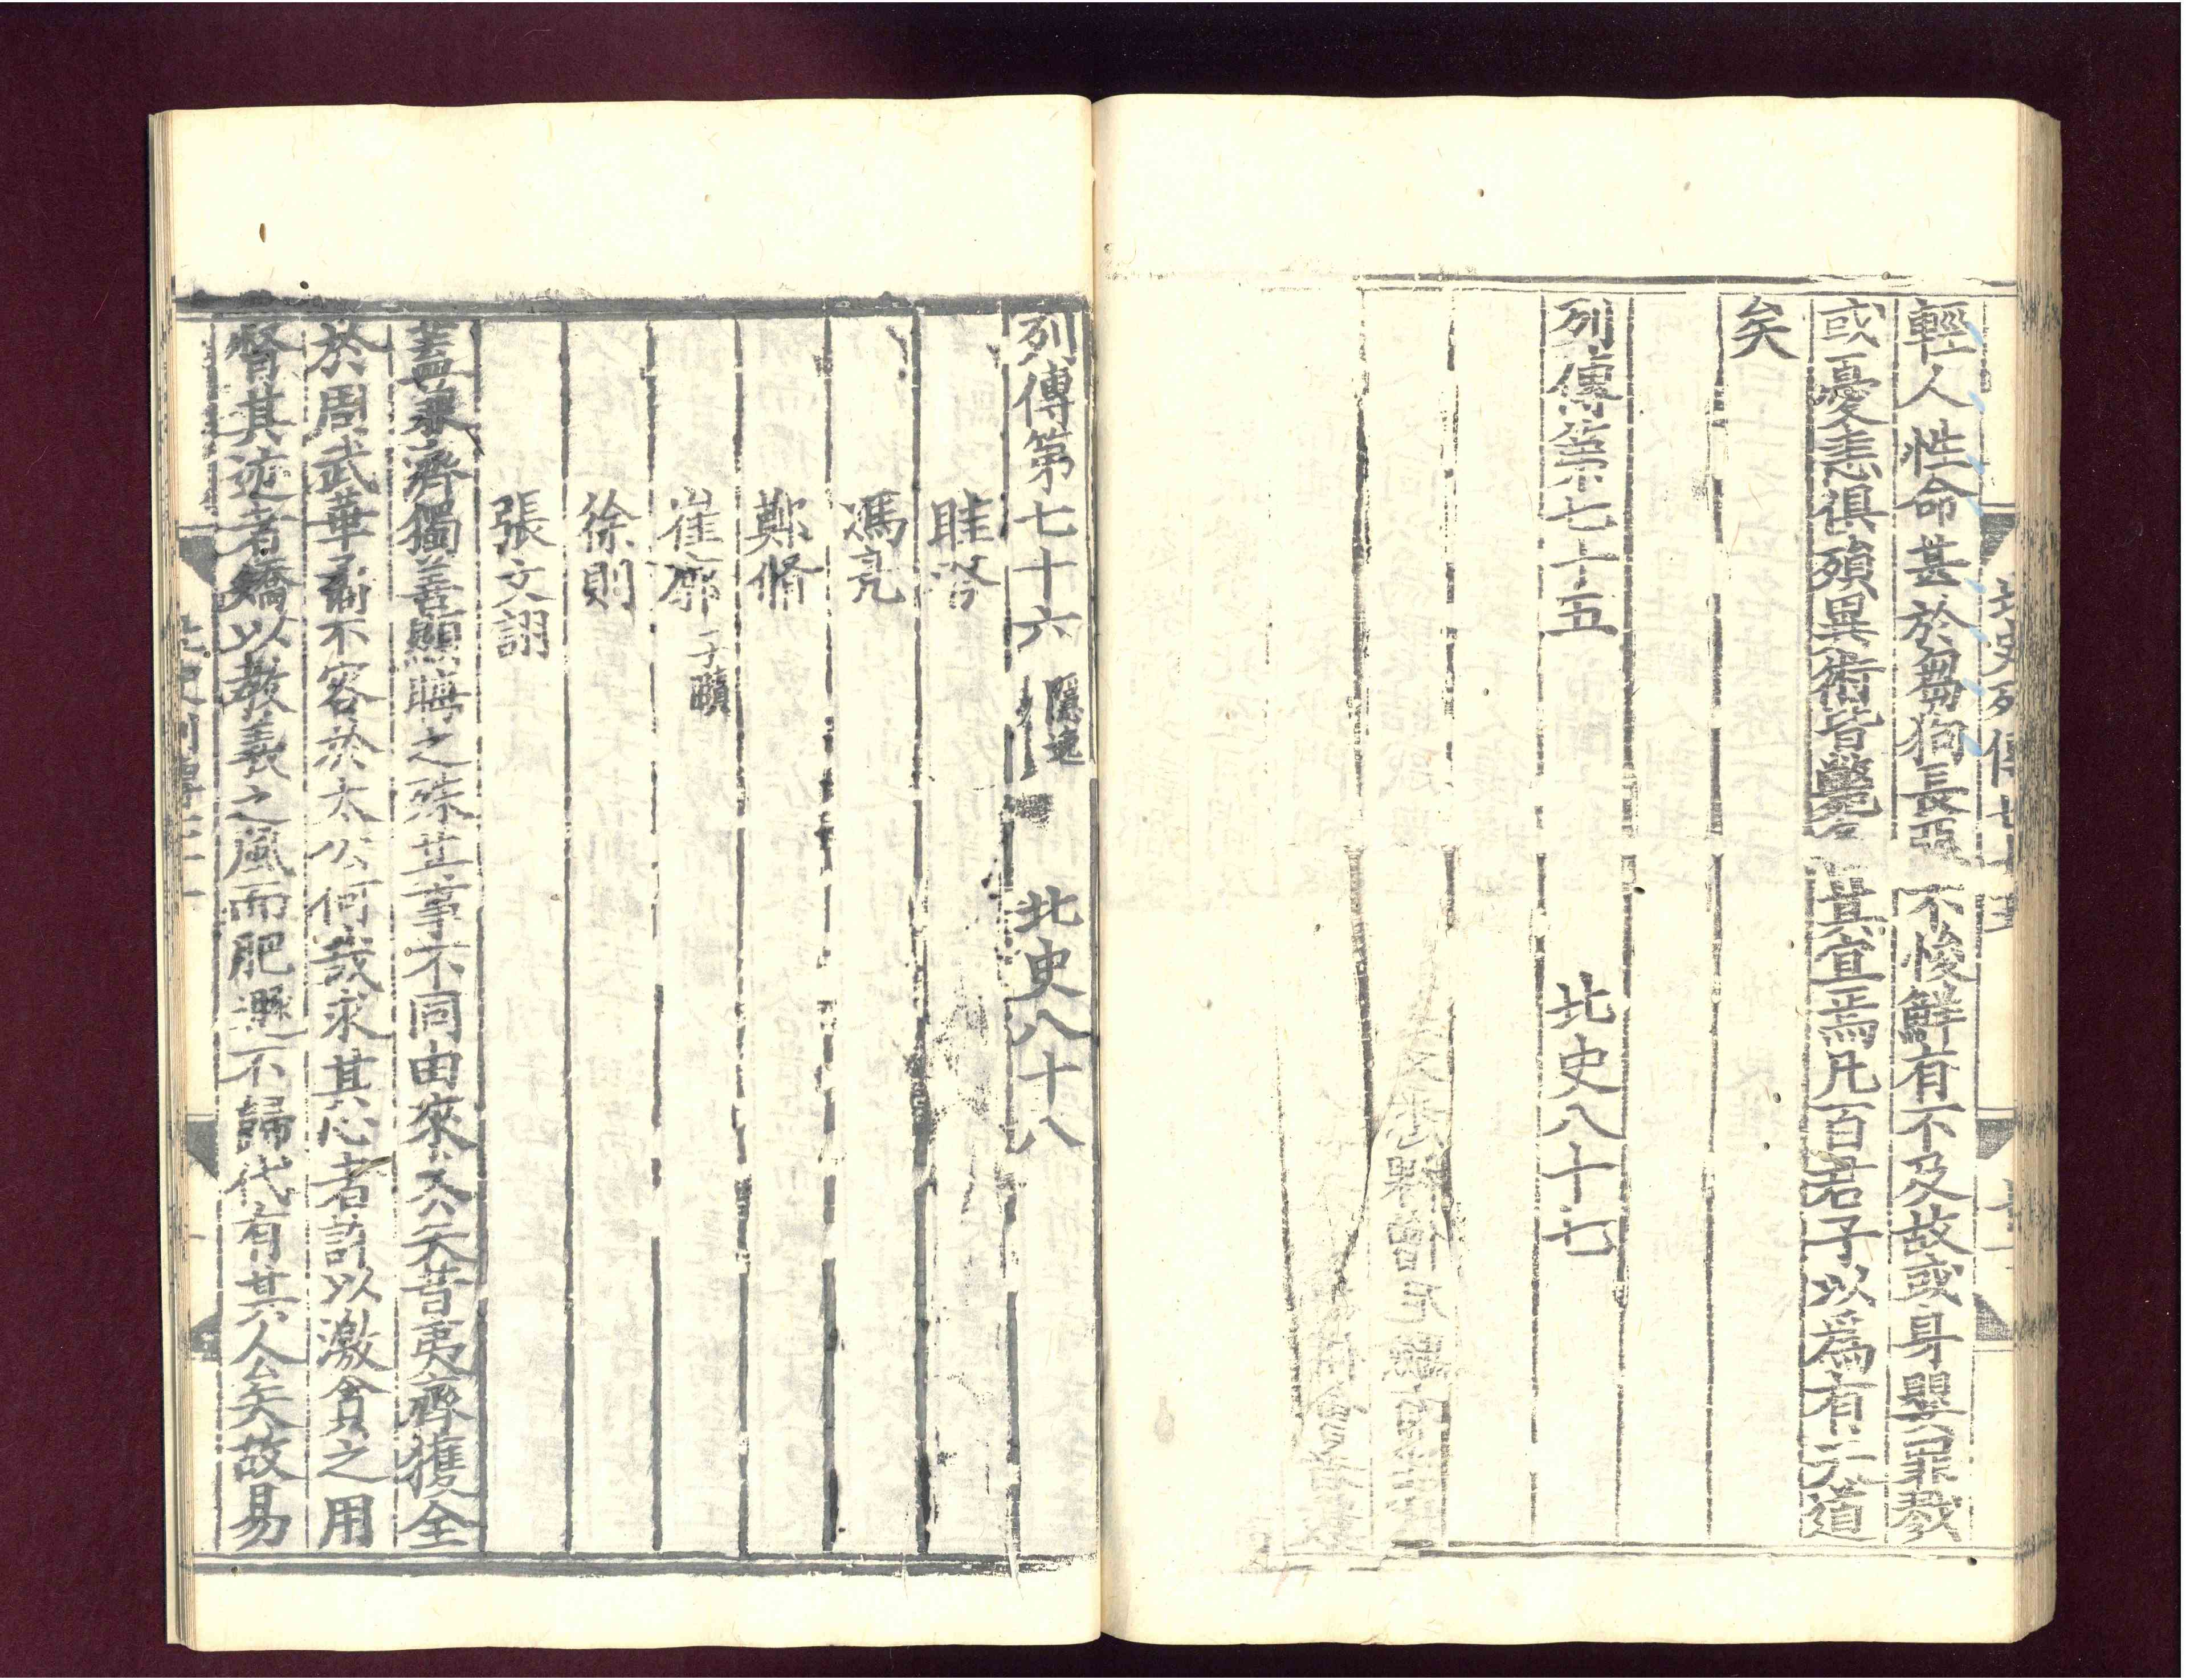 輕人性命甚於芻狗長惡不悛鮮有不及故或身嬰罪戮
或憂恚俱殞異術皆斃各其宜焉凡百君子以爲有天道
矣
列傳第七十五 北史八十七
列傳第七十六 隱逸 北史八十八
眭夸
馮亮
鄭脩
崔廓 子賾
徐則
張文詡
蓋兼濟獨善顯晦之殊其事不同由來久矣昔夷齊獲全
於周武華矞不容於太公何哉求其心者許以激貪之用
督其迹者矯以教義之風而肥遯不歸代有其人矣故易